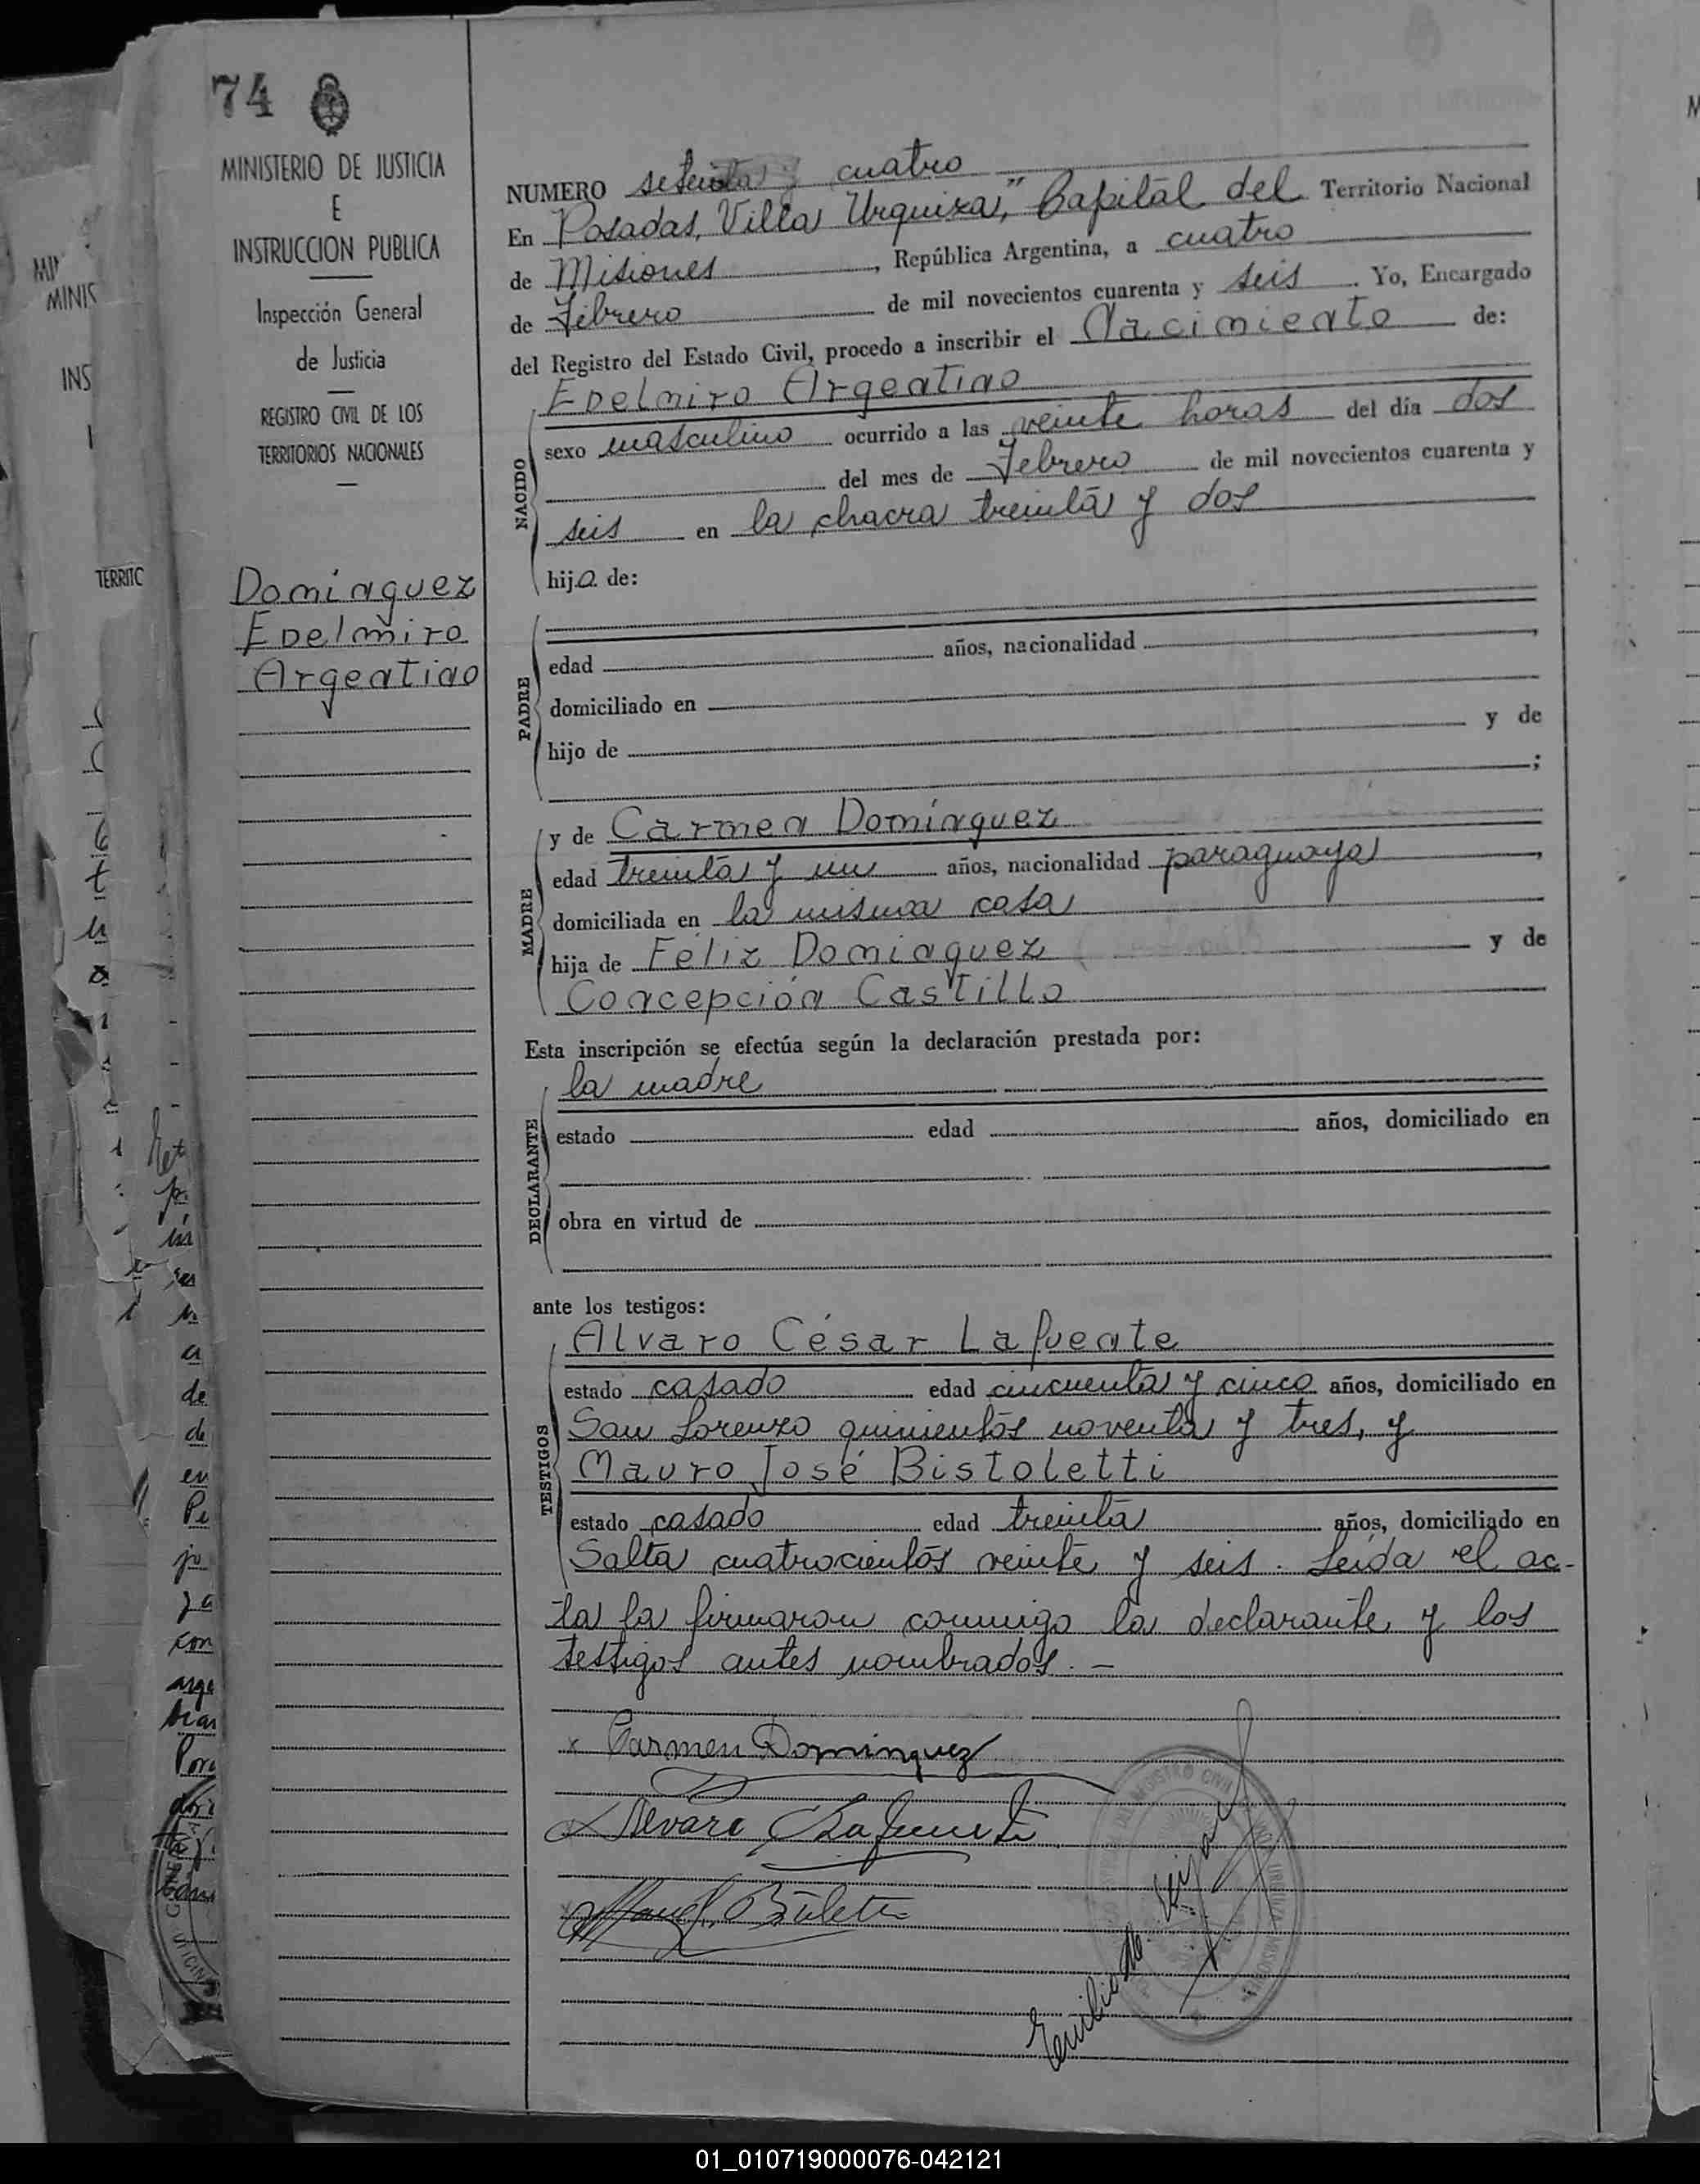 74
MINISTERIO DE JUSTICIA
E
INSTRUCCION PUBLICA
Inspección General
de Justicia
REGISTRO CIVIL DE LOS
TERRITORIOS NACIONALES
Dominguez
Edelmiro
Argentino
NUMERO setenta y cuatro
En Posadas, Villa Urquiza," Capital del Territorio Nacional
de Misiones, República Argentina, a cuatro
de Febrero de mil novecientos cuarenta y seis. Yo, Encargado
del Registro del Estado Civil, procedo a inscribir el Nacimiento de:
NACIDO
Edelmiro Argentino
sexo masculino ocurrido a las veinte horas del día dos
del mes de Febrero de mil novecientos cuarenta y
seis en la chacra treinta y dos
hijo de:
PADRE
edad años, nacionalidad ,
domiciliado en
hijo de y de
;
MADRE
y de Carmen Domínguez
edad treinta y un años, nacionalidad paraguaya,
domiciliada en la misma casa
hija de Féliz Dominguez y de
Concepción Castillo
Esta inscripción se efectúa según la declaración prestada por:
DECLARANTE
la madre
estado edad años, domiciliado en
obra en virtud de
ante los testigos:
TESTIGOS
Alvaro César Lafuente
estado casado edad cincuenta y cinco años, domiciliado en
San Lorenzo quinientos noventa y tres, y
Mauro José Bistoletti
estado casado edad treinta años, domiciliado en
Salta cuatrocientos veinte y seis. Leída el ac-
ta la firmaron conmigo la declarante y los
testigos antes nombrados. -
x Carmen Dominguez
Alvaro Lafuente
01_010719000076-042121